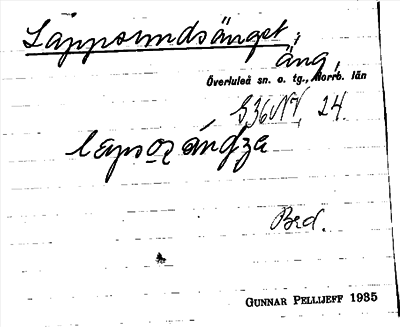 Lappsundsänget,
äng,
Överluleå sn. o. tg., Norrb. län
S36NV, 24.
Bed.
GUNNAR PELLIJEFF 1935